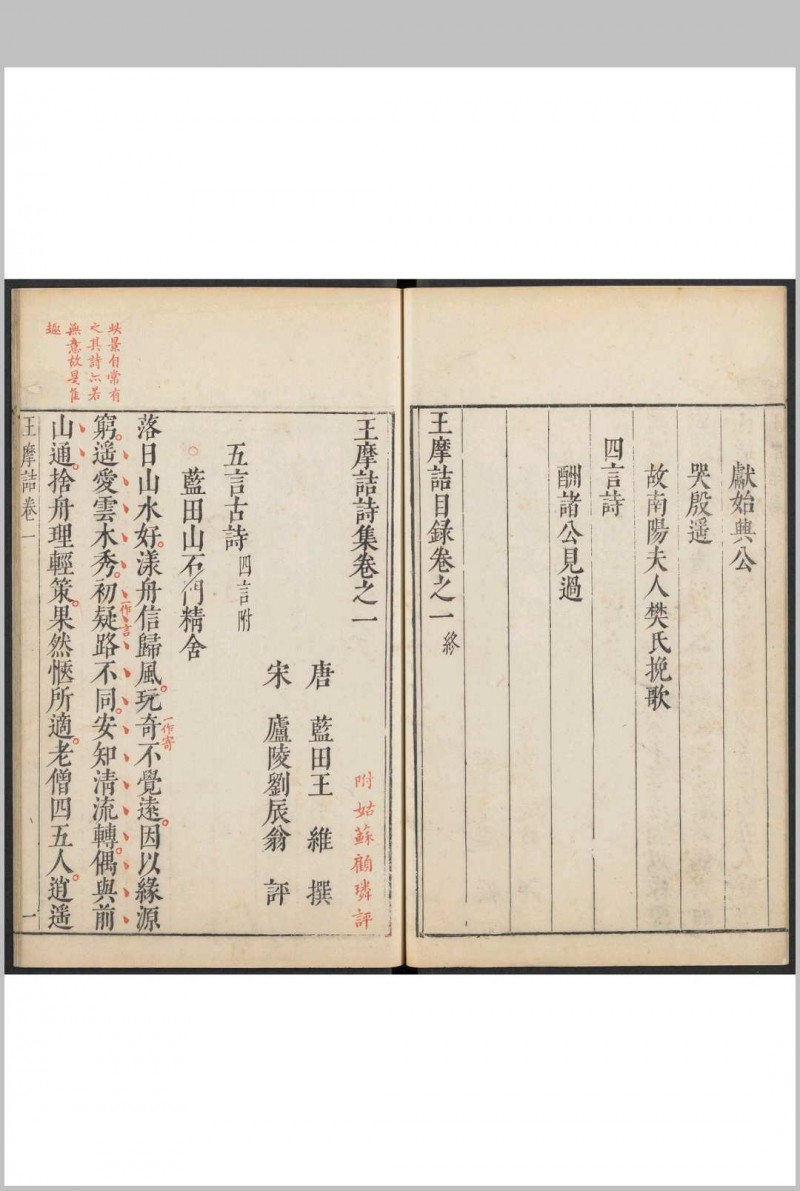 獻始興公
哭殷遥
故南陽夫人樊氏挽歌
四言詩
酬諸公見過
王摩詰目録卷之一 終
王摩詰詩集卷之一
附姑蘇顧璘評
唐 藍田王 維 撰
宋 廬陵劉辰翁 評
五言古詩 四言附
藍田山石門精舍
落日山水好。漾舟信歸風。玩奇不覺遠。因以緣源
一作寄
窮。遥愛雲木秀。初疑路不同。安知清流轉。偶與前
一作言
山通。捨舟理輕策。果然愜所適。老僧四五人。逍遥
此景自常有
之其詩亦若
無意故是佳
趣
王摩詰卷一
一